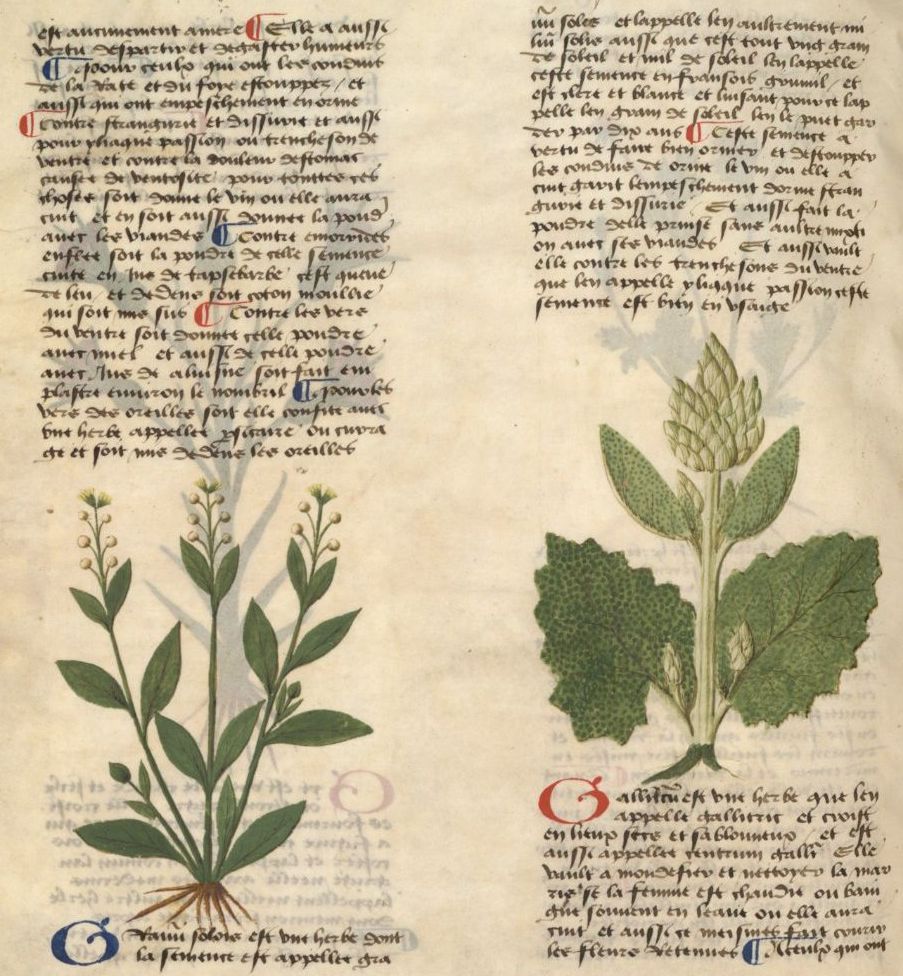 est aucunement amere ¶ Elle a aussi
vertu despartir et degaster humeurs
¶ Pour ceulx qui ont les conduis
de la rate et du foye estouppez / et
aussi qui ont empeschement en orine
¶ Contre strangurie et dissurie et aussi
pour yliaque passion ou trencheson de
ventre et contre la douleur destomac
causee de ventosite pour touttes ces
choses soit donne le vin ou elle aura
cuit et en soit aussi donnee la poud
avec les viandes ¶ Contre emorroides
enflee soit la poudre de celle semence
cuite en jus de tapsebarbe cest queue
de leu / et dedens soit coton moullie
qui soit mis sus ¶ Contre les vers
du ventre soit donnee celle poudre
avec miel et aussi de celle poudre
avec jus de aluisne soit fait em
plastre environ le nombril ¶ Pour les
vers des oreilles soit elle confite avec
une herbe appellee
ge et soit mis dedens les oreilles
Granum solis est une herbe dont
la semence est appellee gra
num solis et lappelle len aultrement mi
lium solis aussi que cest tout ung grain
de soleil et mil de soleil len lappelle
ceste semence en fransois gremil / et
est clere et blance et luisant pour ce lap
pelle len grain de soleil len le puet gar
der par dix ans ¶ Ceste semence a
vertu de faire bien oriner et destoupper
les conduis de orine le vin ou elle a
cuit garit lempeschement dorine stran
gurie et dissurie Et aussi fait la
poudre delle prinse sans aultre mixti
on avec ses viandes Et aussi vault
elle contre les trenchesons du ventre
que len appelle yliaque passion ceste
semence est bien en usaige
Galliricum est une herbe que len
appelle gallitric et croist
en lieux secs et sablonneux / et est
aussi appellee centrum galli Elle
vault a mondefier et nettoyer la mar
ris se la femme est chaudie ou bain
gne souvent en leaue ou elle aura
cuit et aussi ce meismes fait courir
les fleurs retenues ¶ A ceulx qui ont